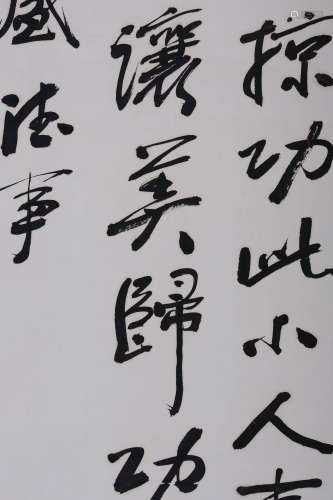 掠功此小人事
讓美歸功
盛德事